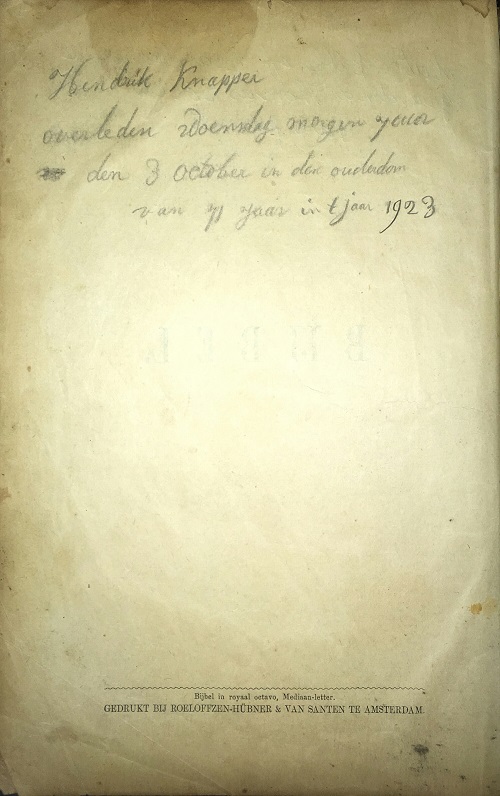 Hendrik Knapper
overleden Woensdag morgen 7 uur
den 3 October in den ouderdom
van 71 jaar in 't jaar 1923
BIJBEL
Bijbel in royaal octavo, Mediaan-letter.
GEDRUKT BIJ ROELOFFZEN-HÜBNER & VAN SANTEN TE AMSTERDAM.